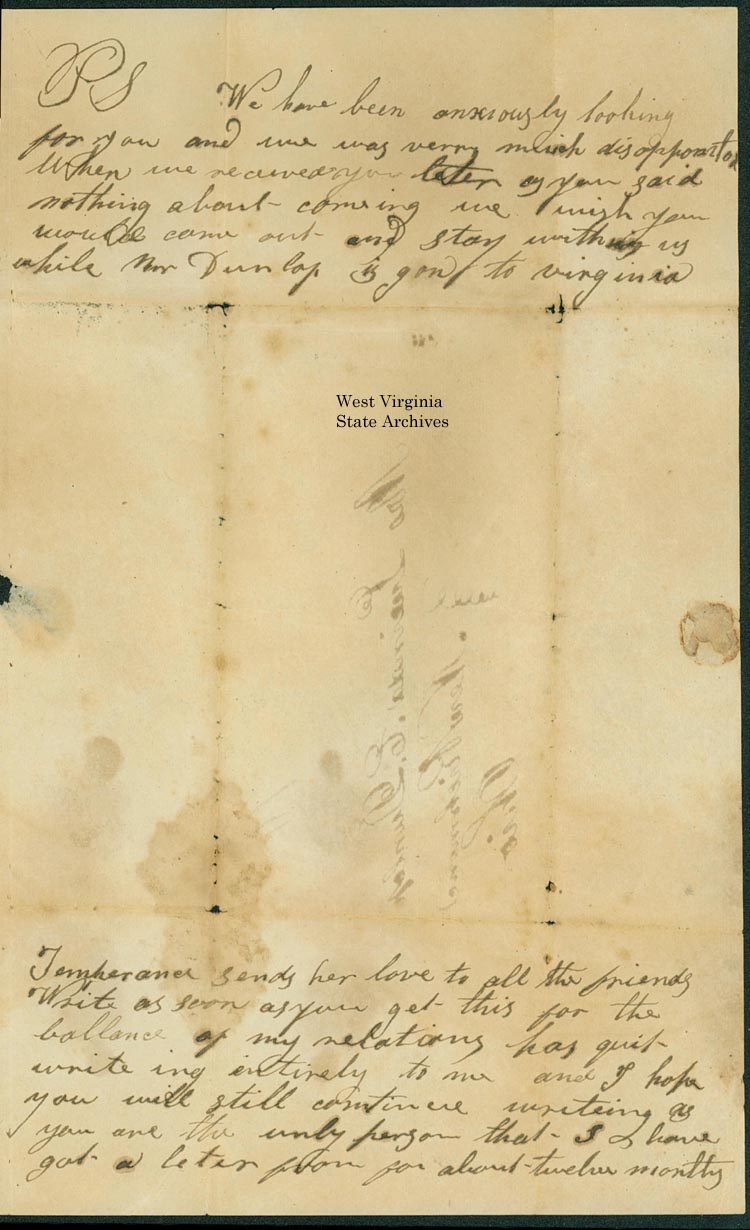 PS We have been anxiously looking
for you and we was verry much disappointed
When we received your leter as you said
nothing about comeing we wish you
would come out and stay with us
while Mr Dunlap is gon to virginia
West Virginia
State Archives
Temperance sends her love to all the friends
Write as soon as you get this for the
ballance of my relations has quit
write ing entirely to me and I hope
you will still continue writeing as
you are the only person that I have
got a leter from for about twelve months